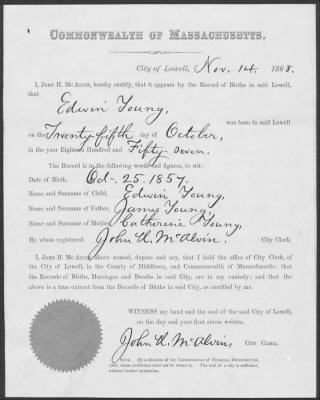 COMMONWEALTH OF MASSACHUSETTS.
City of Lowell, Nov. 14. 1868.
I, JOHN H. MCALVIN, hereby certify, that it appears by the Record of Births in said Lowell,
that
Edwin Young, was born in said Lowell
on the Twenty fifth day of October,
in the year Eighteen Hundred and Fifty Seven.
The Record is in the following words and figures, to wit:
Date of Birth, Oct. 25. 1857.
Name and Surname of Child, Edwin Young,
Name and Surname of Father, James Young,
Name and Surname of Mother, Catherine Young,
By whom registered. John H. McAlvin. City Clerk.
I, JOHN H. MCALVIN, above named, depose and say, that I hold the office of City Clerk, of
the City of Lowell, in the County of Middlesex, and Commonwealth of Massachusetts; that
the Records of Births, Marriages and Deaths in said City, are in my custody; and that the
above is a true extract from the Records of Births in said City, as certified by me.
WITNESS my hand and the seal of the said City of Lowell,
on the day and year first above written.
John H. McAlvin, CITY CLERK.
NOTE. By a decision of the Commissioner of Pensions, December 6th,
1864, these certificates need not be sworn to. The seal of a city is sufficient,
without further attestation.